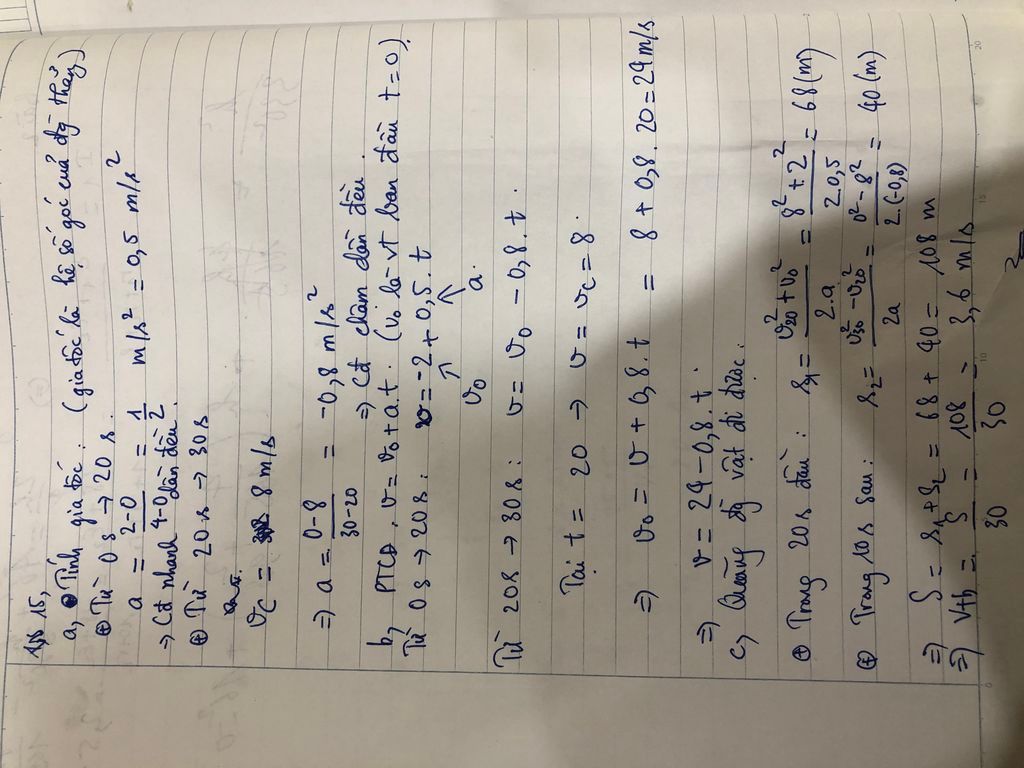 15,
a, Tính gia tốc : (gia tốc là hệ số góc của đg thẳng)
⊕ Từ 0s → 20s.
a = \frac{2-0}{4-0} = \frac{1}{2} m/s² = 0,5 m/s²
→ Cđ nhanh dần đều.
⊕ Từ 20s → 30s
v_C = 8 m/s
⇒ a = \frac{0-8}{30-20} = -0,8 m/s² ⇒ Cđ chậm dần đều.
b, PTCĐ. v = v₀ + a.t. (v₀ là vt ban đầu t = 0)
Từ 0s → 20s : v = -2 + 0,5. t
↑ ↑
v₀ a.
Từ 20s → 30s : v = v₀ - 0,8. t.
Tại t = 20 → v = v_C = 8.
⇒ v₀ = v + 0,8. t = 8 + 0,8. 20 = 24 m/s
⇒ v = 24 - 0,8. t.
c, Quãng đg vật đi được.
⊕ Trong 20s đầu : s₁ = \frac{v₂₀² + v₀²}{2.a} = \frac{8² + 2²}{2.0,5} = 68 (m)
⊕ Trong 10s sau : s₂ = \frac{v₃₀² - v₂₀²}{2a} = \frac{0² - 8²}{2.(-0,8)} = 40 (m)
⇒ S = s₁ + s₂ = 68 + 40 = 108 m
⇒ Vtb = \frac{S}{30} = \frac{108}{30} = 3,6 m/s